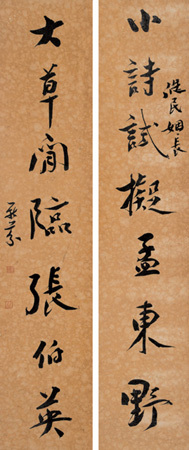 小詩試擬孟東野
浩民姻長
大草閒臨張伯英